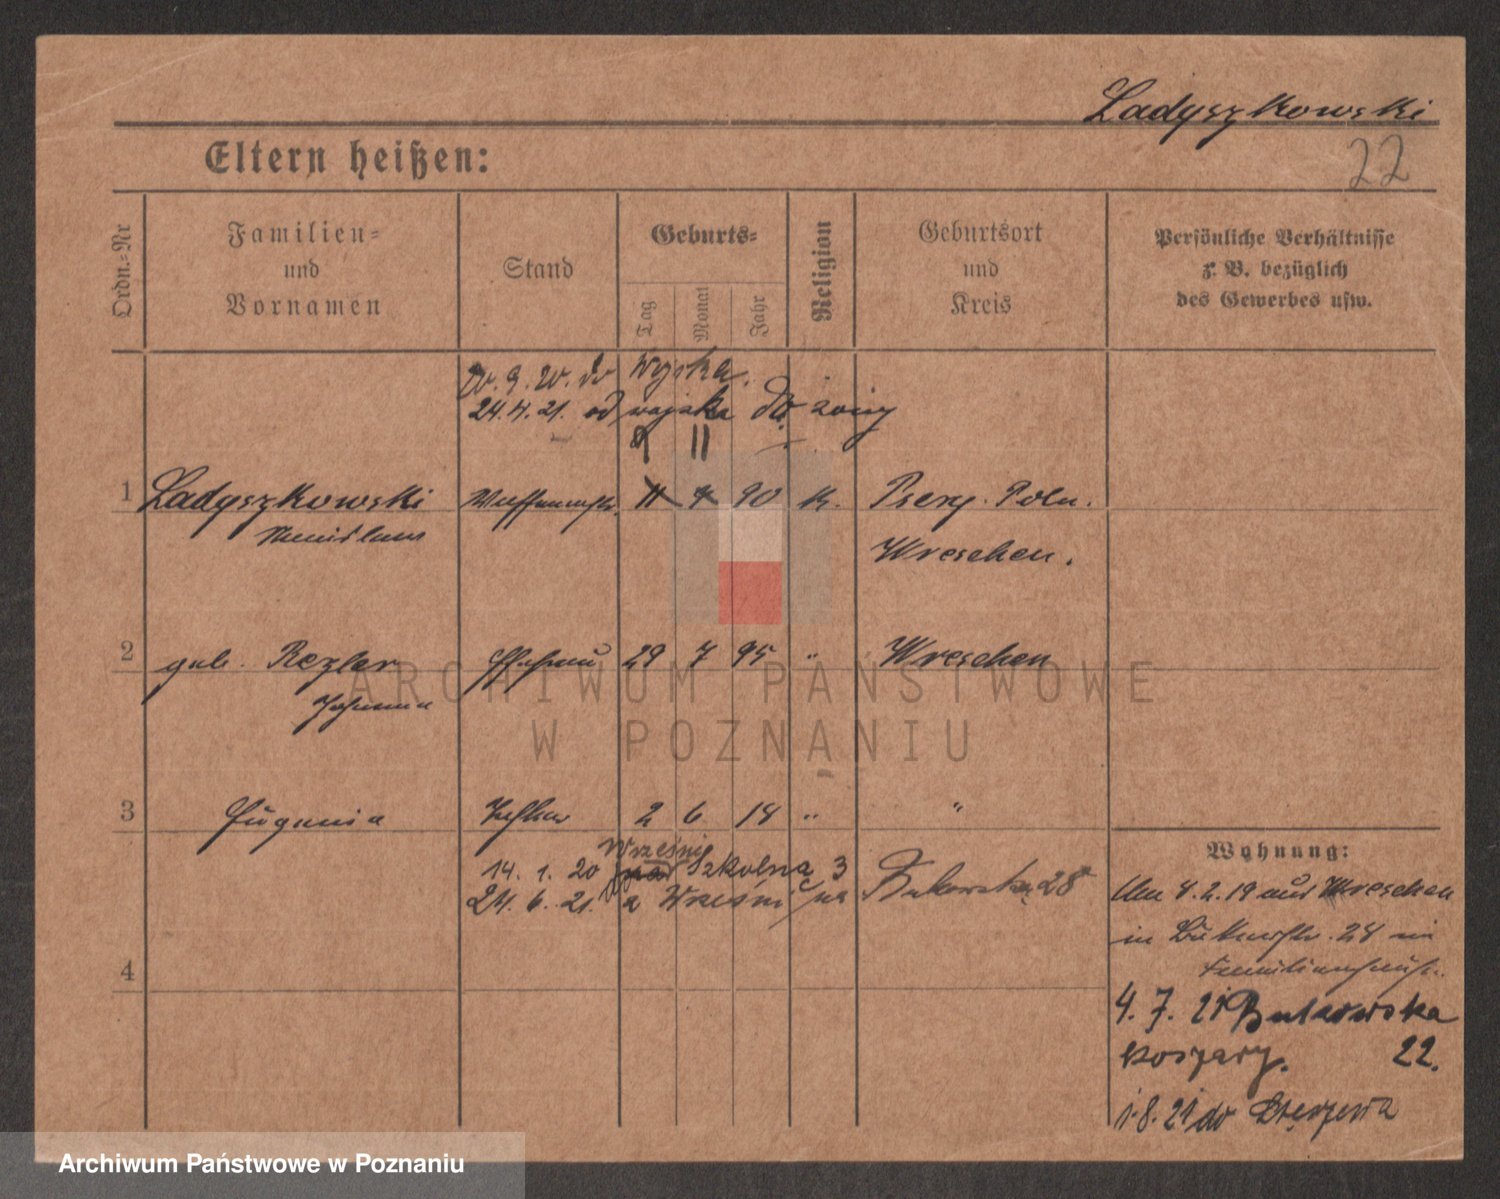 Ladyszkowski
22
Eltern heißen:
Ordn.-Nr
Familien-
und
Vornamen
Stand
Geburts-
Tag
Monat
Jahr
Religion
Geburtsort
und
Kreis
Persönliche Verhältnisse
z. B. bezüglich
des Gewerbes usw.
20. 9. 20. do wojska.
24. 4. 21. od wojska do żony
9 11
1 Ladyszkowski 11 4 90 K. Psery. Poln.
Stanislaus
Wreschen.
2 geb. Rezler Ehefrau 29 7 95 " Wreschen
Johanna
3 Eugenia Tochter 2 6 18 " "
Wrześni
14. 1. 20 Szkolna 3
24. 6. 21. z Wrześni na Bukowska 28
4
Wohnung:
Am 8.2.19 aus Wreschen
in Bukerstr. 28 im
Familienhaus.
4. 7. 21 Bukowska
koszary. 22.
1.8.21 do
ARCHIWUM PAŃSTWOWE
W POZNANIU
Archiwum Państwowe w Poznaniu